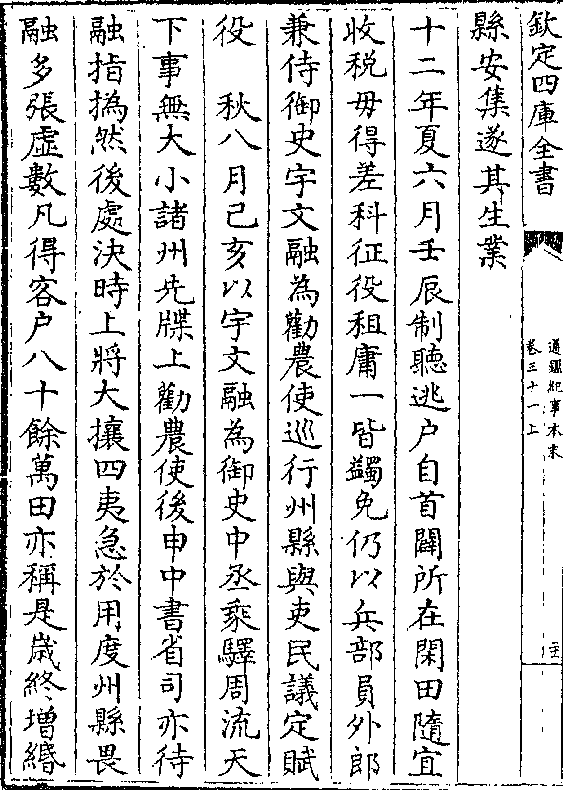 欽定四庫全書
通鑑紀事本末
卷三十一上
縣安集遂其生業
十二年夏六月壬辰制聽逃户自首闢所在閑田隨宜
收税毋得差科征役租庸一皆蠲免仍以兵部員外郎
兼侍御史宇文融為勸農使巡行州縣與吏民議定賦
役　秋八月己亥以宇文融為御史中丞乘驛周流天
下事無大小諸州先牒上勸農使後申中書省司亦待
融指撝然後處決時上將大攘四夷急於用度州縣畏
融多張虛數凡得客户八十餘萬田亦稱是歲終增緡